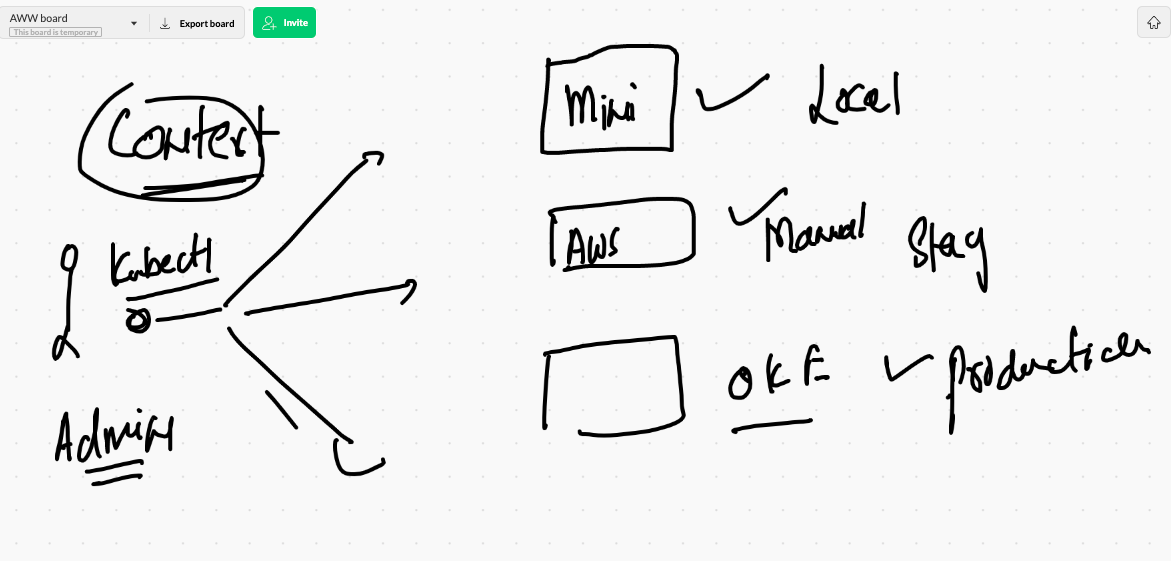 AWW board
This board is temporary
Export board
Invite
Context
Kubectl
Admin
Mini
Local
AWS
Manual Stag
OKE
Production